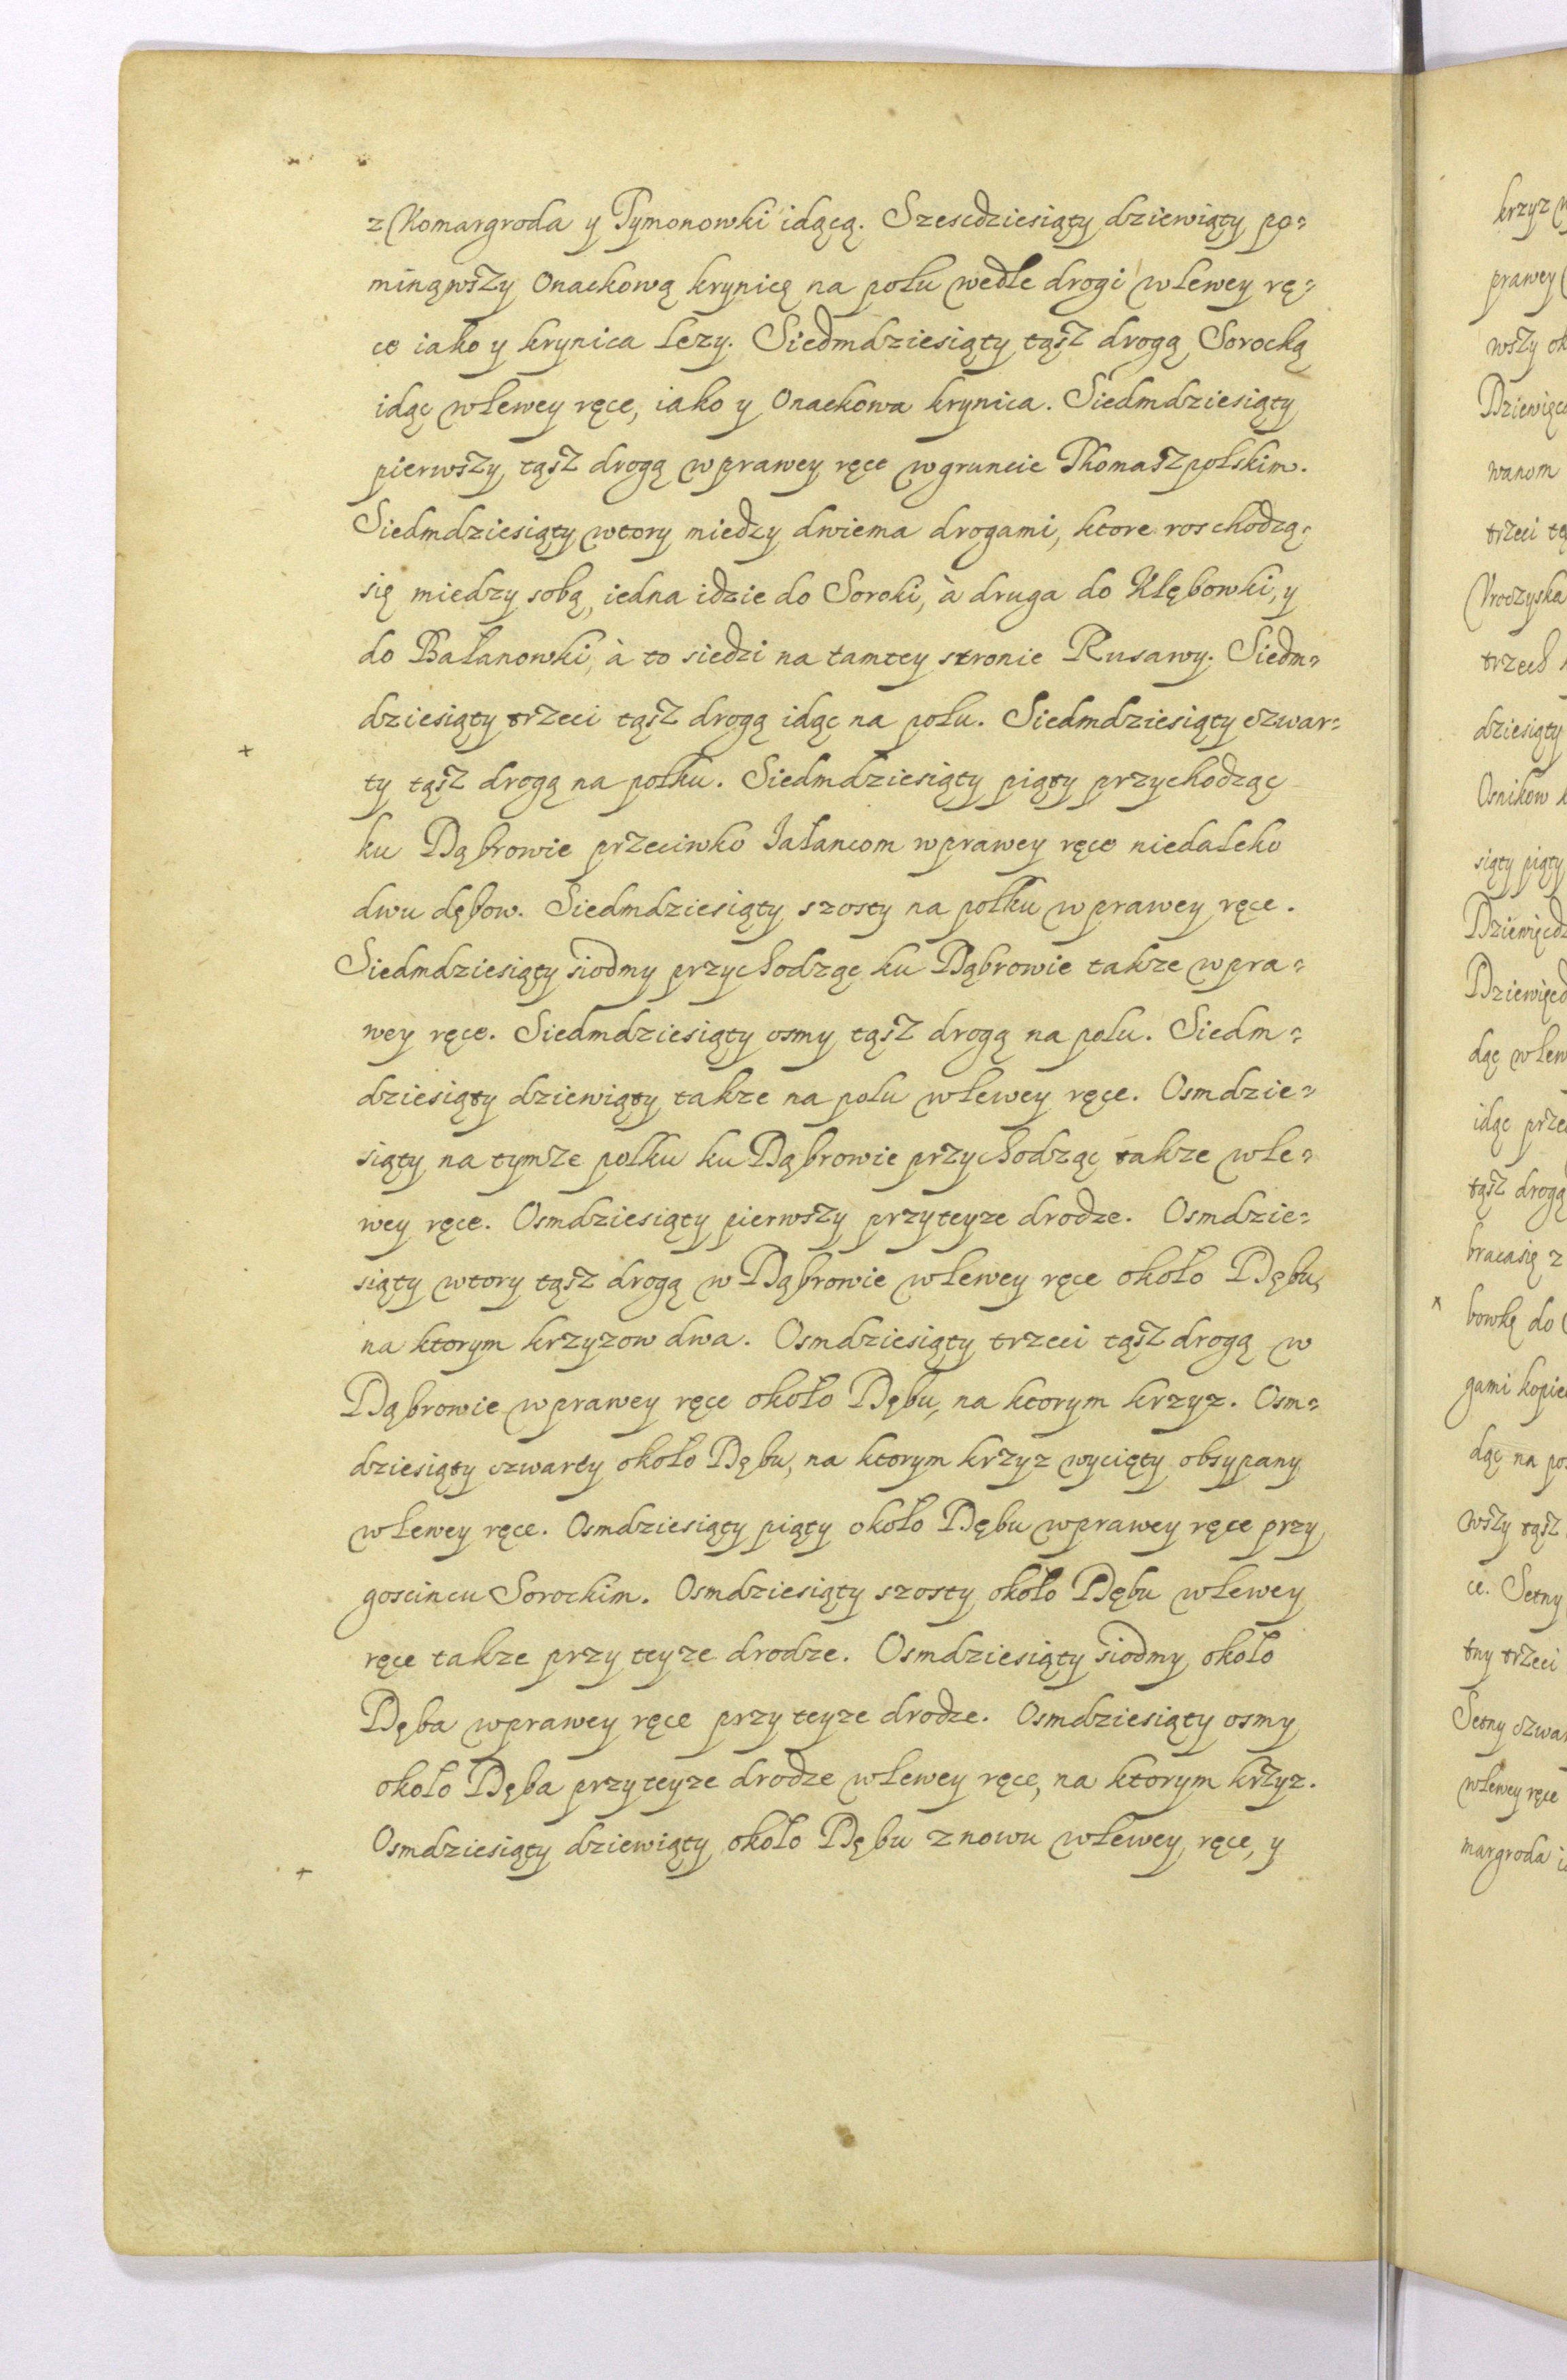 z Komargroda y Tymonowki idącą. Szescdziesiąty dziewiąty po=
minąwszy Onackową krynicę na polu wedle drogi w lewey rę=
ce iako y krynica lezy. Siedmdziesiąty tąsz drogą Sorocką
idąc w lewey ręce, iako y Onackowa krynica. Siedmdziesiąty
pierwszy tąsz drogą w prawey ręce w gruncie Thomaszpolskim.
Siedmdziesiąty wtory miedzy dwiema drogami, ktore roschodzą
się miedzy sobą, iedna idzie do Soroki, à druga do Kłębowki, y
do Bałanowki, à to siedzi na tamtey stronie Rusawy. Siedm=
dziesiąty trzeci tąsz drogą idąc na polu. Siedmdziesiąty czwar=
ty tąsz drogą na polku. Siedmdziesiąty piąty przychodząc
ku Dąbrowie przeciwko Jałancom w prawey ręce niedaleko
dwu dębow. Siedmdziesiąty szosty na polku w prawey ręce.
Siedmdziesiąty siodmy przychodząc ku Dąbrowie takze w pra=
wey ręce. Siedmdziesiąty osmy tąsz drogą na polu. Siedm=
dziesiąty dziewiąty takze na polu w lewey ręce. Osmdzie=
siąty na tymze polku ku Dąbrowie przychodząc takze w le=
wey ręce. Osmdziesiąty pierwszy przy teyze drodze. Osmdzie=
siąty wtory tąsz drogą w Dąbrowie w lewey ręce około Dębu,
na ktorym krzyzow dwa. Osmdziesiąty trzeci tąsz drogą w
Dąbrowie w prawey ręce około Dębu, na ktorym krzyz. Osm=
dziesiąty czwarty około Dębu, na ktorym krzyz wycięty obsypany
w lewey ręce. Osmdziesiąty piąty około Dębu w prawey ręce przy
goscincu Sorockim. Osmdziesiąty szosty około Dębu w lewey
ręce takze przy teyze drodze. Osmdziesiąty siodmy około
Dęba w prawey ręce przy teyze drodze. Osmdziesiąty osmy
około Dęba przy teyze drodze w lewey ręce, na ktorym krzyz.
Osmdziesiąty dziewiąty około Dębu znowu w lewey ręce, y
krzyz
prawey
wszy
Dziewięć
wanom
trzeci
Vroczyska
trzech
dziesiąty
Osnikow
siąty piąty
Dziewięcdz
Dziewięcd
dąc w lew
idąc prze
tąsz drogą
braca się z
bowkę do
gami kopie
dąc na po
wszy tąsz
ce. Setny
tny trzeci
Setny czwar
w lewey ręce
margroda